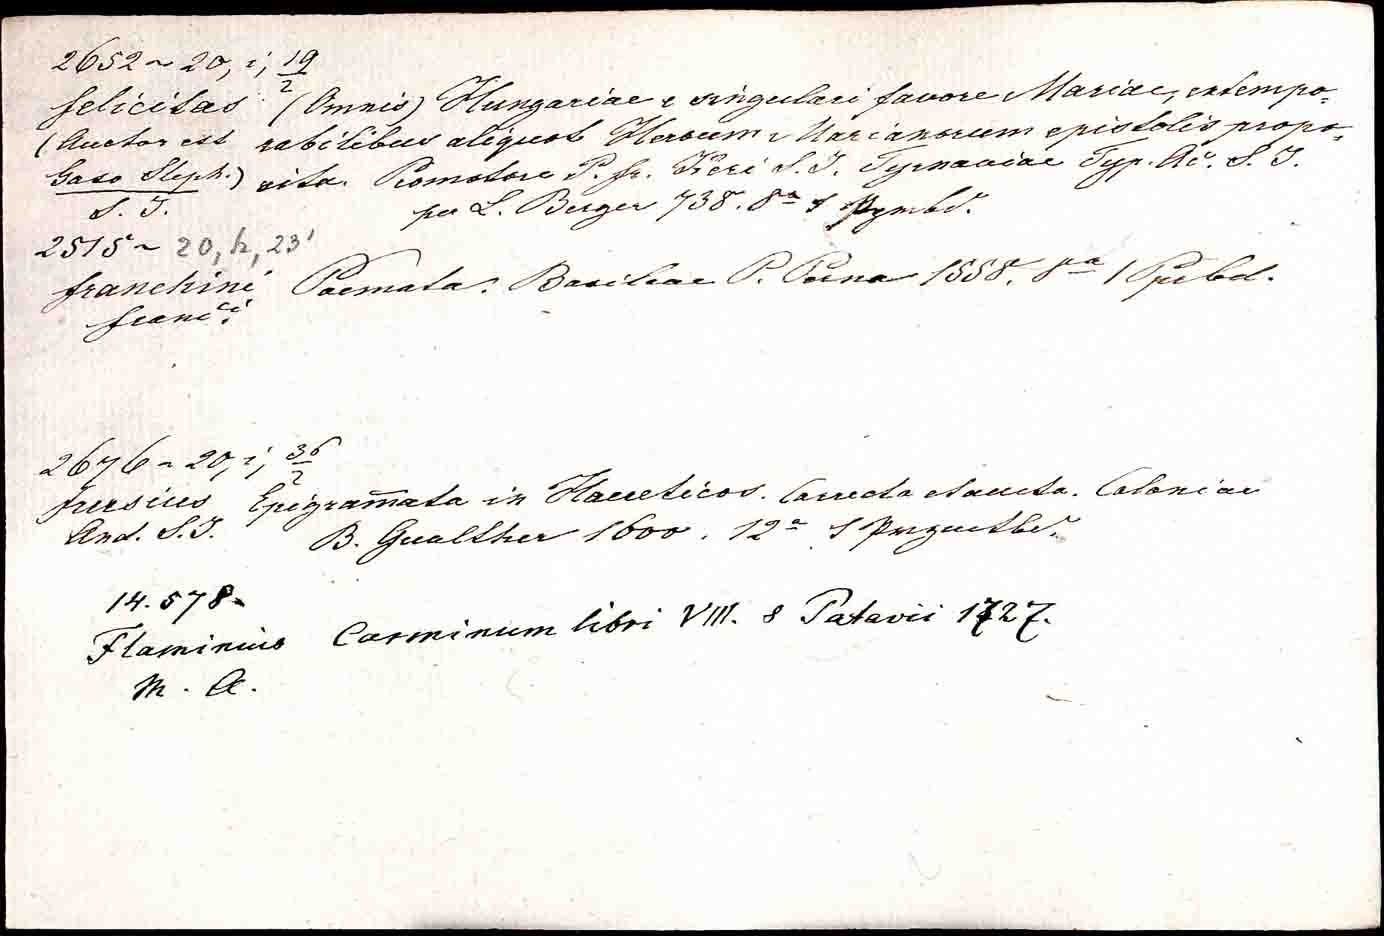 2652 ~ 20, i, 19/2
Felicitas (Omnis) Hungariae e singulari favore Mariae, extempo=
(Auctor est rabilibus aliquot Heroum Marianorum epistolis propo=
Gaso Steph.) sita. Promotore P. Fr. Keri S. I. Tyrnaviae Typ. Ac. S. I.
S. I. per L. Berger 738. 8° 1
2515 ~ 20, h, 23
Franchini Poemata. Basileae P. Perna 1558. 8a 1
Franci
2676 ~ 20, i, 36/2
Frusius Epigram̄ata in Haereticos. Correcta et aucta. Coloniae
And. S. I. B. Gualther 1600. 12a 1
14.578.
Flaminius Carminum libri VIII. 8 Patavii 1727.
M. A.